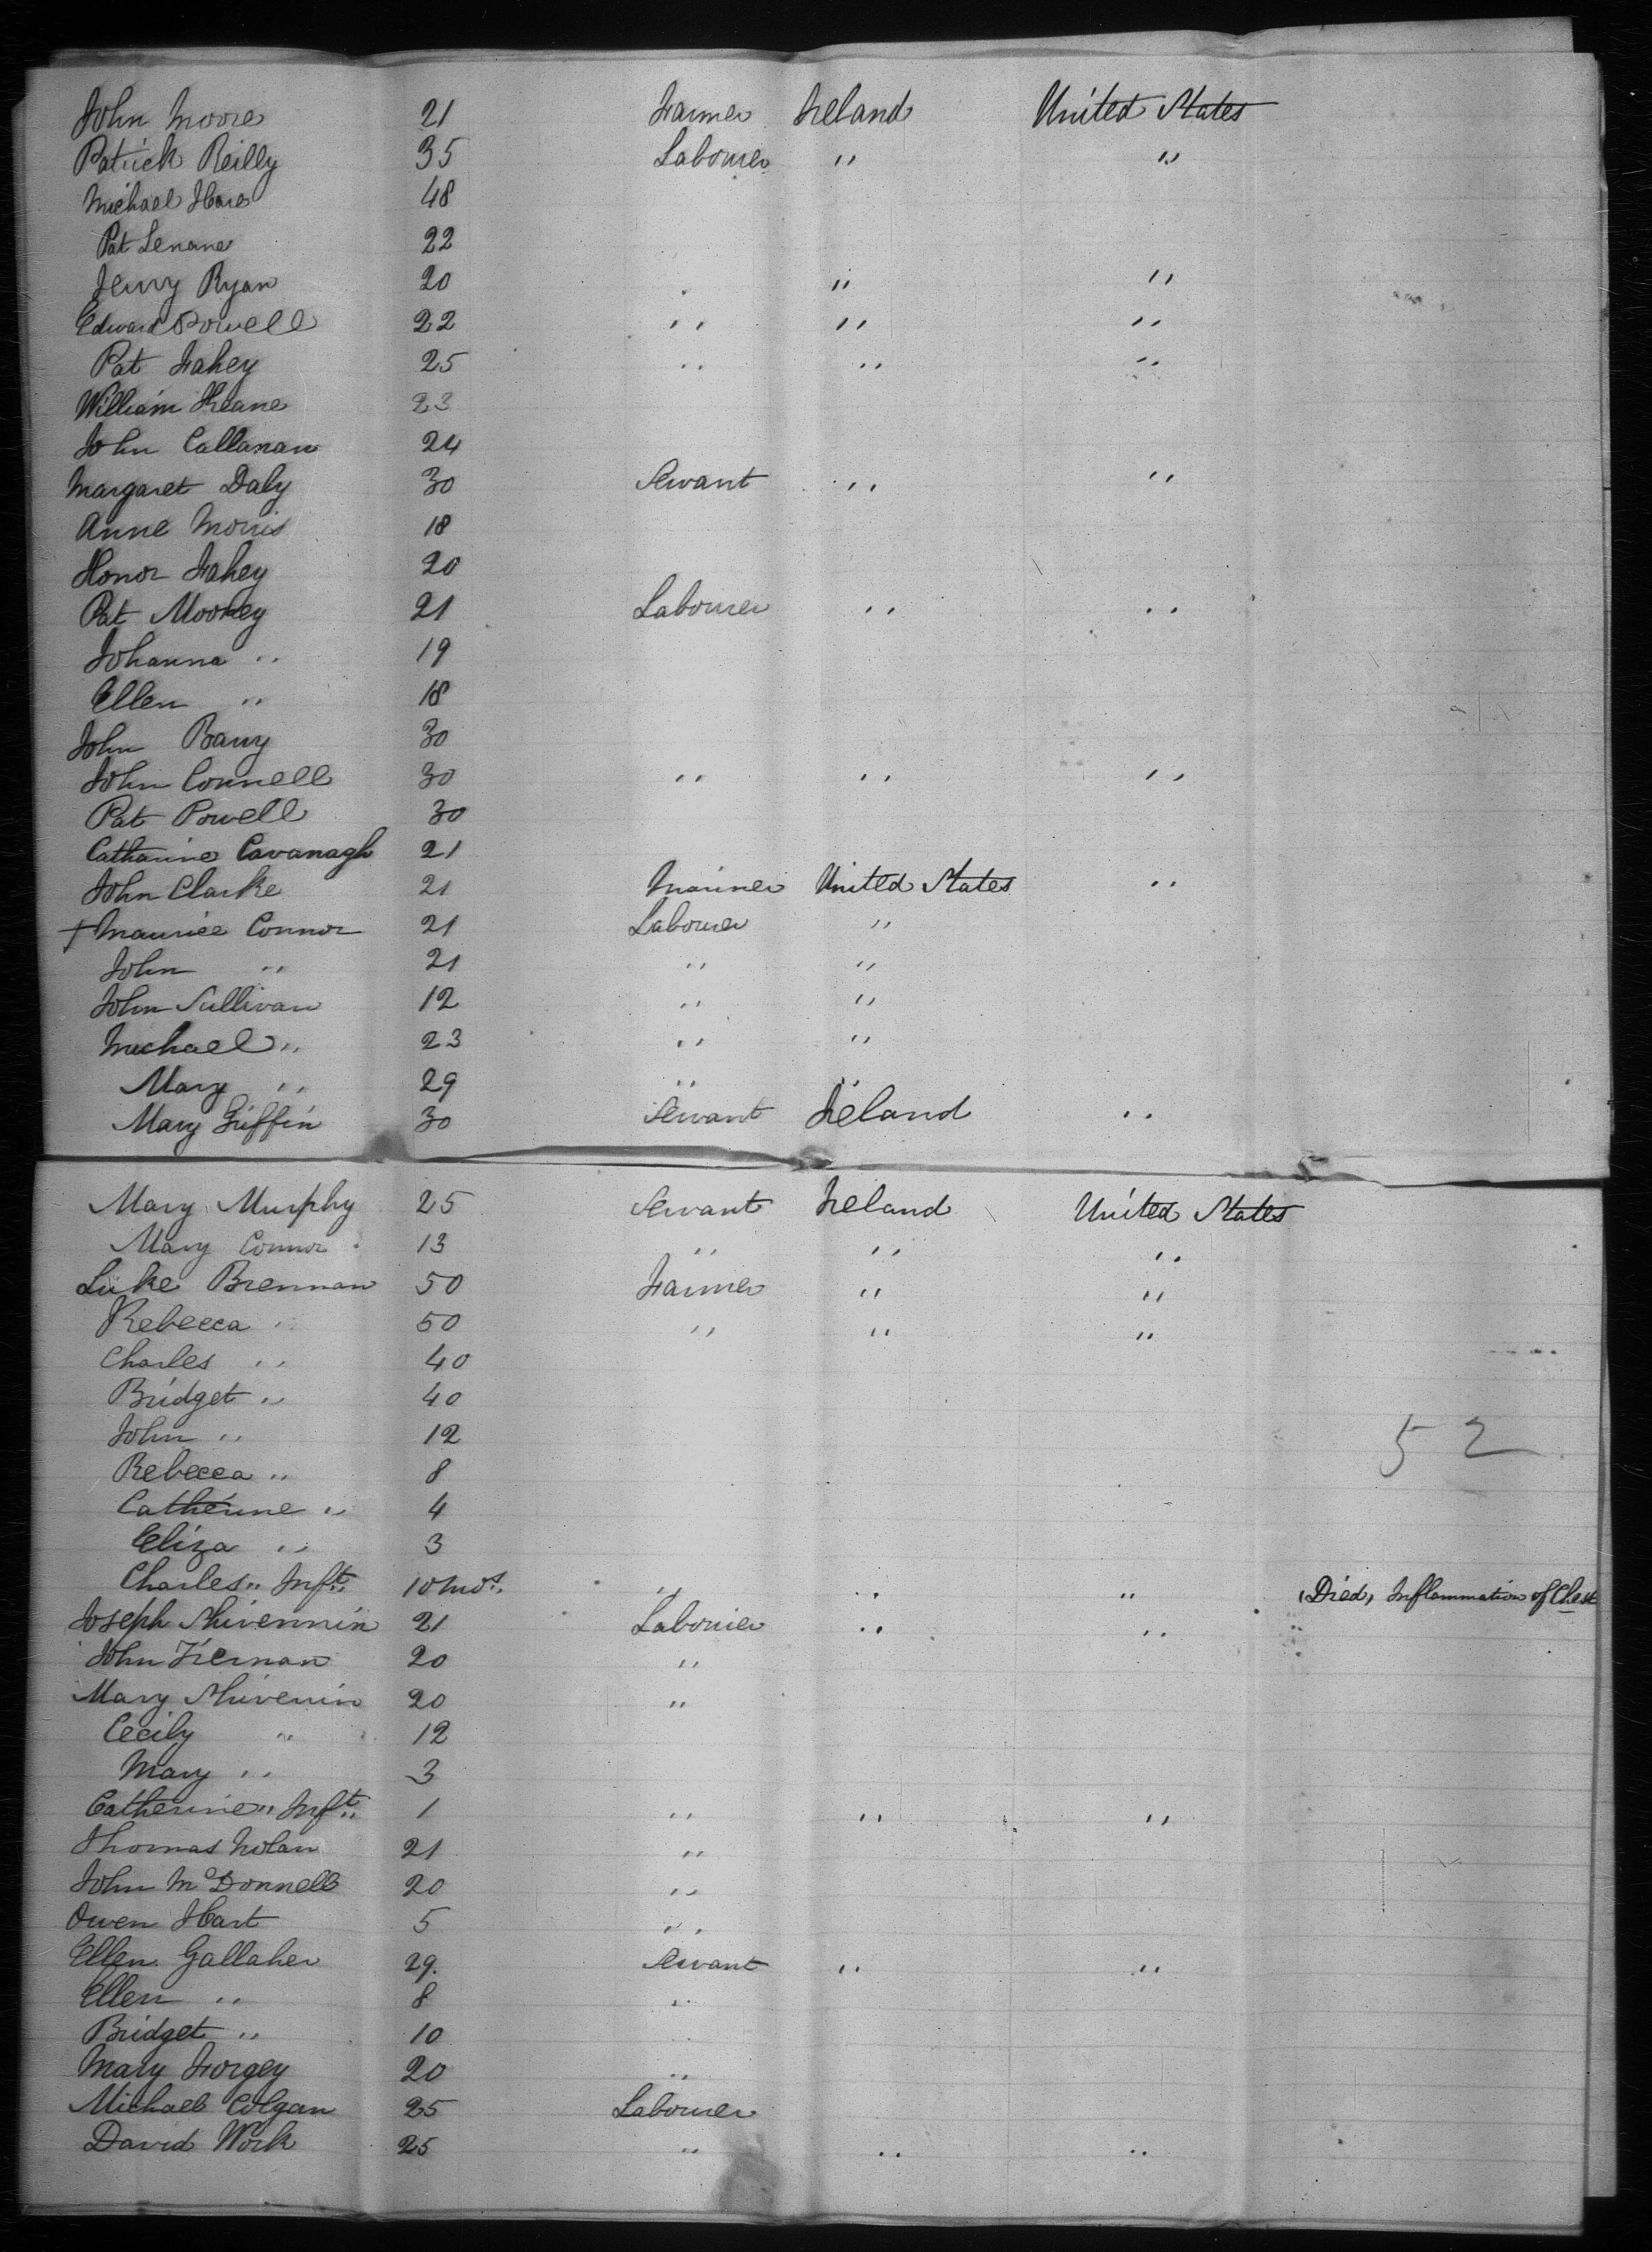 John Moore 21 Farmer Ireland United States
Patrick Reilly 35 Labourer " "
Michael Hare 48
Pat Lenane 22
Jerry Ryan 20 " "
Edward Powell 22 " " "
Pat Fahey 25 " " "
William Keane 23
John Callanan 24
Margaret Daly 30 Servant " "
Anne Morris 18
Honor Fahey 20
Pat Mooney 21 Labourer " "
Johanna " 19
Ellen " 18
John Barry 30
John Connell 30 " " "
Pat Powell 30
Catharine Cavanagh 21
John Clarke 21 Mariner United States "
+ Maurice Connor 21 Labourer "
John " 21 " "
John Sullivan 12 " "
Michael " 23 " "
Mary " 29 " "
Mary Griffin 30 Servant Ireland "
Mary Murphy 25 Servant Ireland United States
Mary Connor 13 " " "
Luke Brennan 50 Farmer " "
Rebecca " 50 " " "
Charles " 40
Bridget " 40
John " 12
52
Rebecca " 8
Catherine " 4
Eliza " 3
Charles " Inft. 10 mos. " " " Died, Inflammation of Chest
Joseph 21 Labourer " "
John Tiernan 20 "
Mary 20 "
Cecily " 12
Mary " 3
Catherine " Inft. 1 " " "
Thomas Nolan 21 "
John McDonnell 20 "
Owen Hart 5 "
Ellen Gallaher 29. Servant " "
Ellen " 8 "
Bridget " 10
Mary Forgey 20 "
Michael Colgan 25 Labourer
David Work 25 " " "